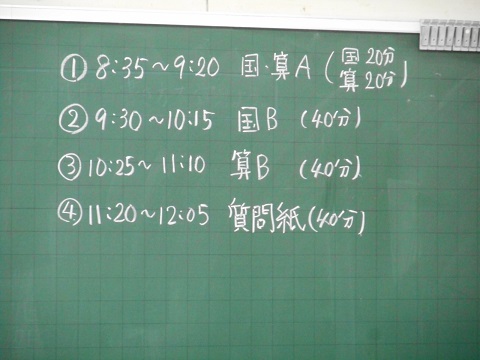 ① 8:35〜9:20 国・算A (国20分 算20分)
② 9:30〜10:15 国B (40分)
③ 10:25〜11:10 算B (40分)
④ 11:20〜12:05 質問紙(40分)